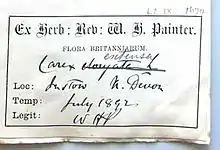 Ex Herb: Rev: W. H. Painter.
FLORA BRITANNIARUM.
extensa
Carex elongata
Loc: Instow N. Devon
Temp: July 1892
Legit: W HP